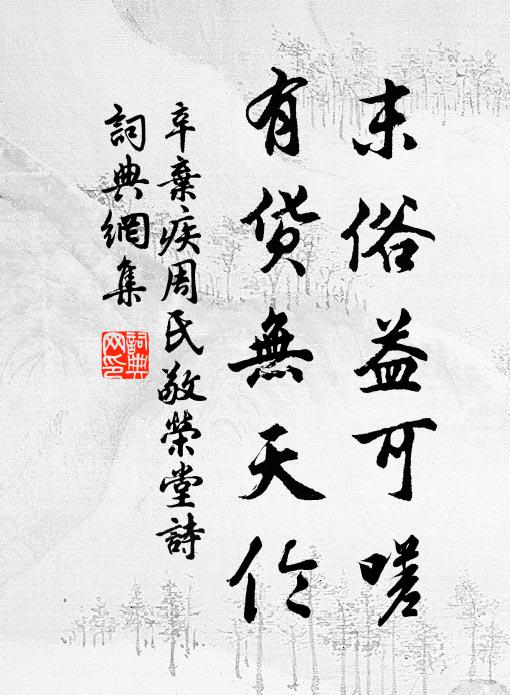 末俗益可嗟
有貨無天倫
辛棄疾周氏敬榮堂詩
詞典網集
詞典
网印